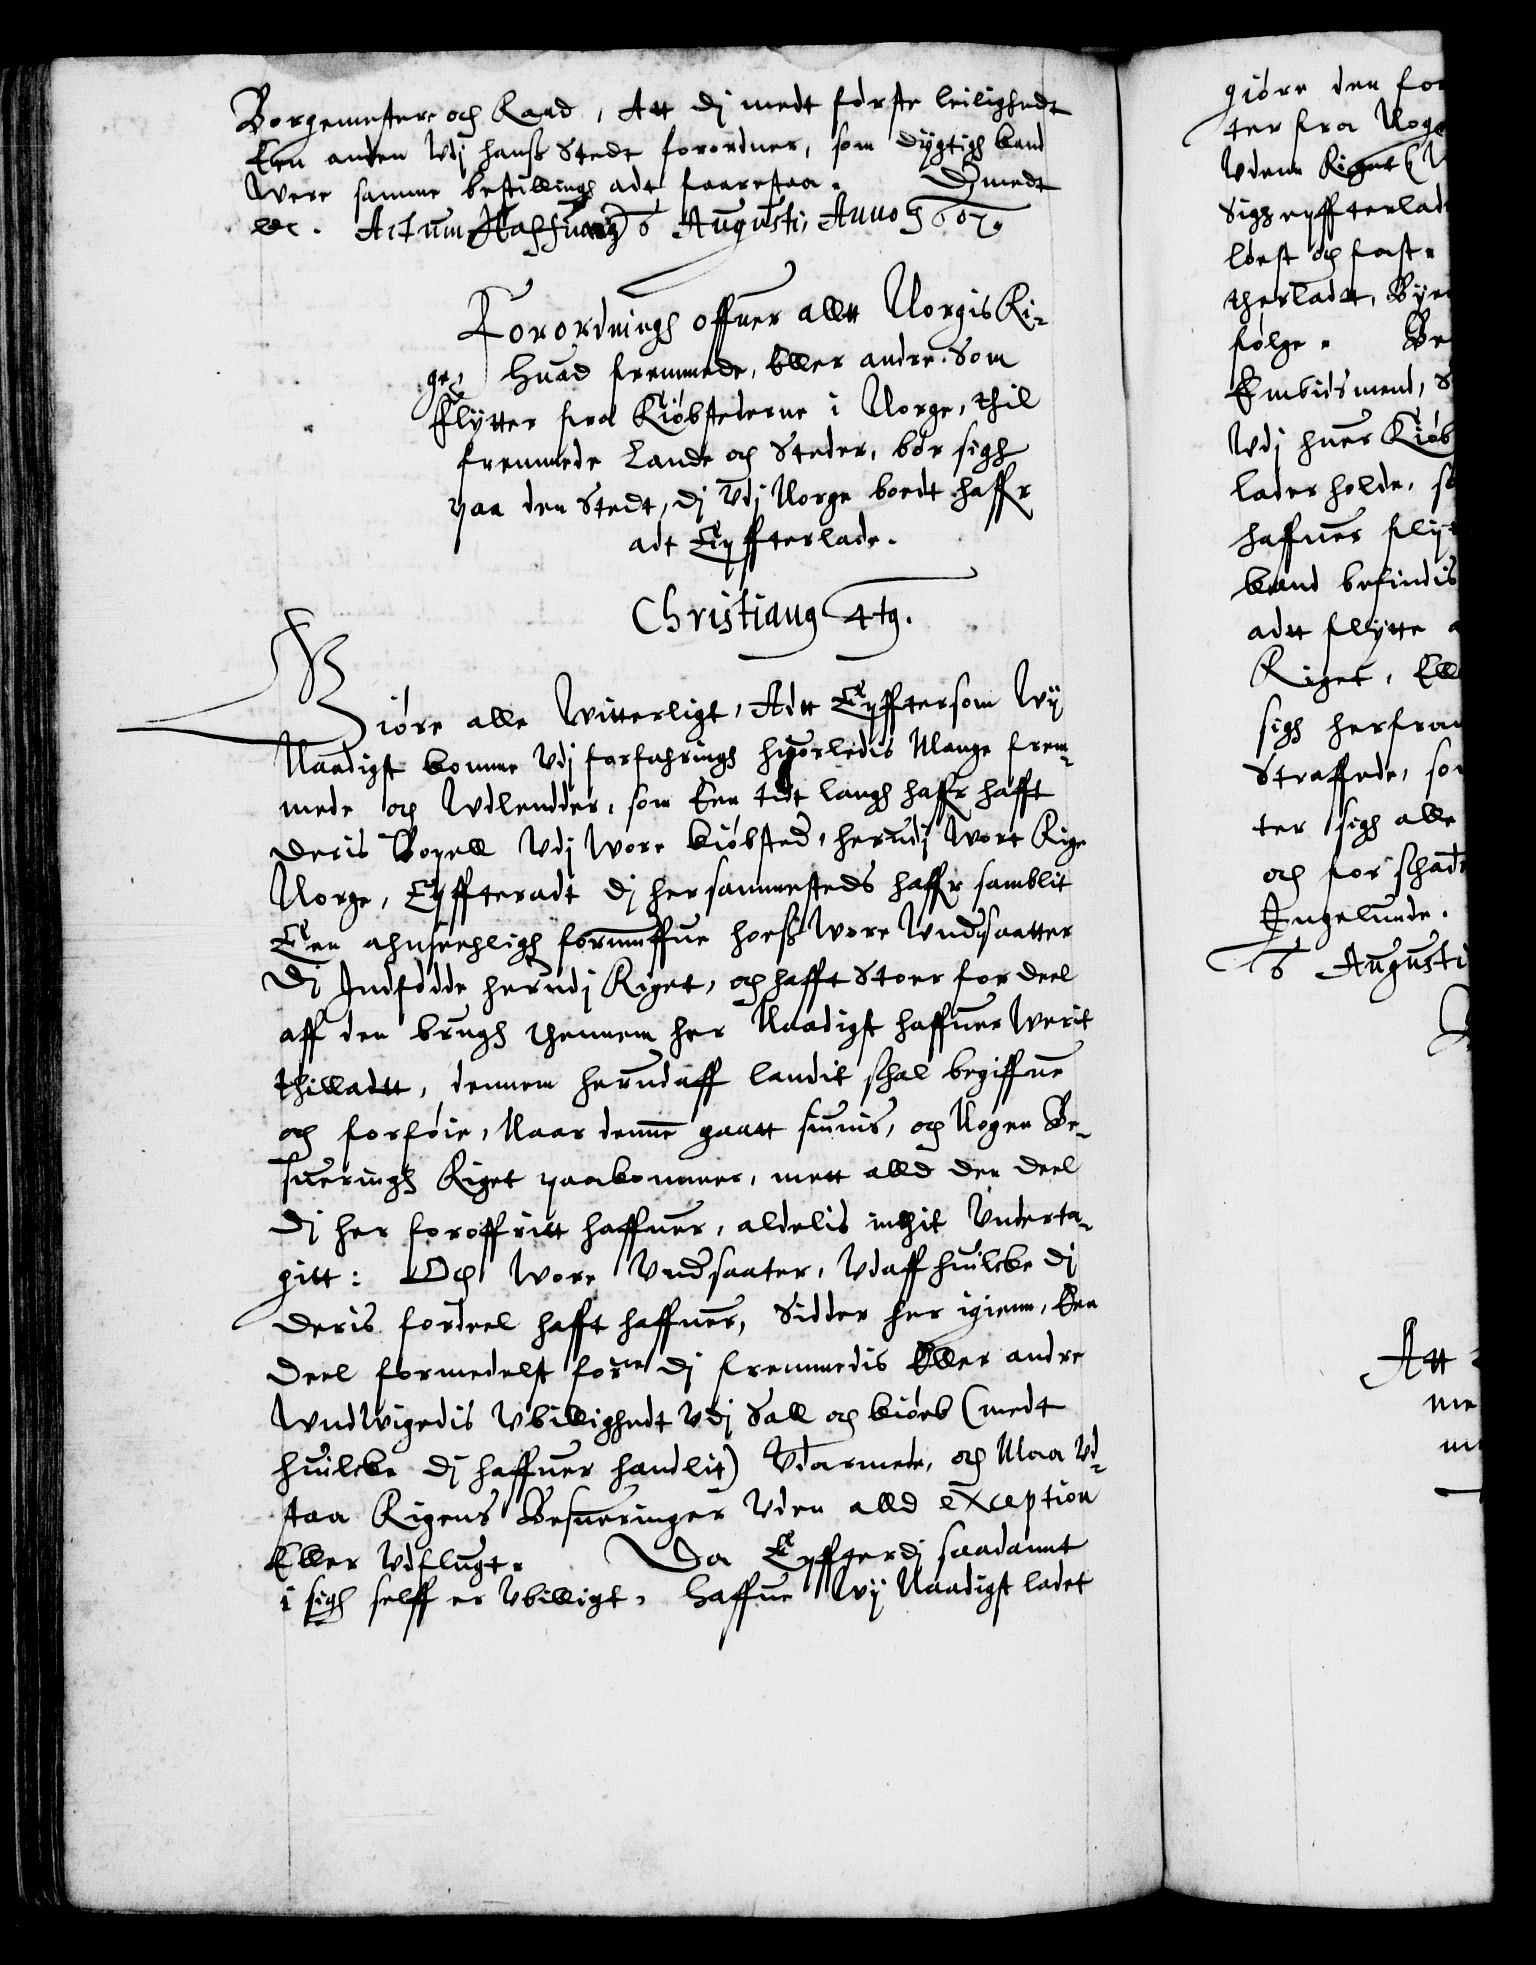 Borgemestere och Raad, Att dj medt første leilighedt
Een anden Udj hanß Stedt forordner, som dygtigh kand
Were samme bestillingh adt faarestaa. Dermedt
etc. Actum Haffniæ 6 Augusti, Anno 1607.
Forordningh offuer allt Norgis Ri-
ge, Huad fremmede, Eller andre. Som
Flytter fra Kiøbstederne i Norge, thil
fremmede Lande och Steder, bør sigh
paa den Stedt, dj Udj Norge boedt haffr
adt Effterlade.
Christianus 4tus.
Giøre alle Witterligt, Adtt Effttersom Wij
Naadigst komme Udj forfahringh huorledis Mange frem-
mede och Udlendder, som Een tidt langh haffr hafft
deris Bopell Udj Wore kiøbsted, herudj Wort Rige
Norge, Effteradt dj hersammesteds haffr samblit
Een ahnseehligh formuffue hoeß Wore Undersaatter
Dj Indfødde herudj Riget, och hafft Stoer fordeel
aff den brugh thennem her Naadigst haffuer Werit
thilladtt, dennem herudaff landit schal begiffue
och forføie, Naar denne gaatt siunis, och Nogen Be-
sueringh Riget paakommer, mett alld den deel
dj her foroffritt haffuer, aldelis inthit Underta-
gitt: Och Wore Undersaater, Udaff huilcke dj
deris fordeel hafft haffuer, Sidder her igienn, Een
deel formedelst forne dj fremmedis Eller andre
Undwigedis Ubillighedt Udj Sall och kiøeb (medt
huilcke dj haffuer handlit) Udarmede, och Maa Ud-
staa Rigens Besueringer Uden alld exception
Eller Udflugt. Da Effterdj saadannt
i sigh selff er Ubilligt, Haffue Wij Naadigst ladet
giøre den for
ter fra Nog
Udenn Riget
Sigh effterlad
løest och fast.
therladtt, Bye
følge. Be
Embidsmend, S
Udj huer Kiøb
lader holde, s
haffuer flyt
kand befindis
adtt flytte
Riget, Ell
sigh herfra
Straffede, so
ter sigh alle
och for schad
Ingelunde.
6 Augusti
Att
me